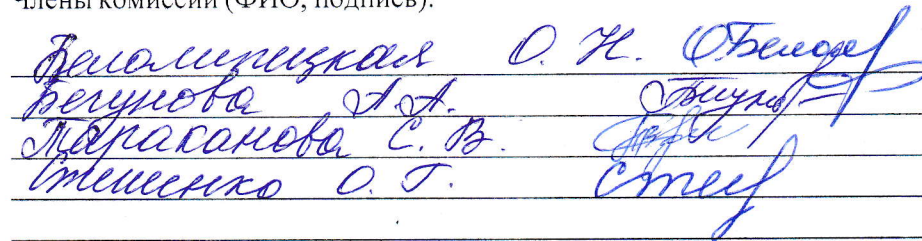 Члены комиссии (ФИО, подпись):
Беломытицкая О. Н.
Бегунова А. А.
Тараканова С. В.
О. Г.